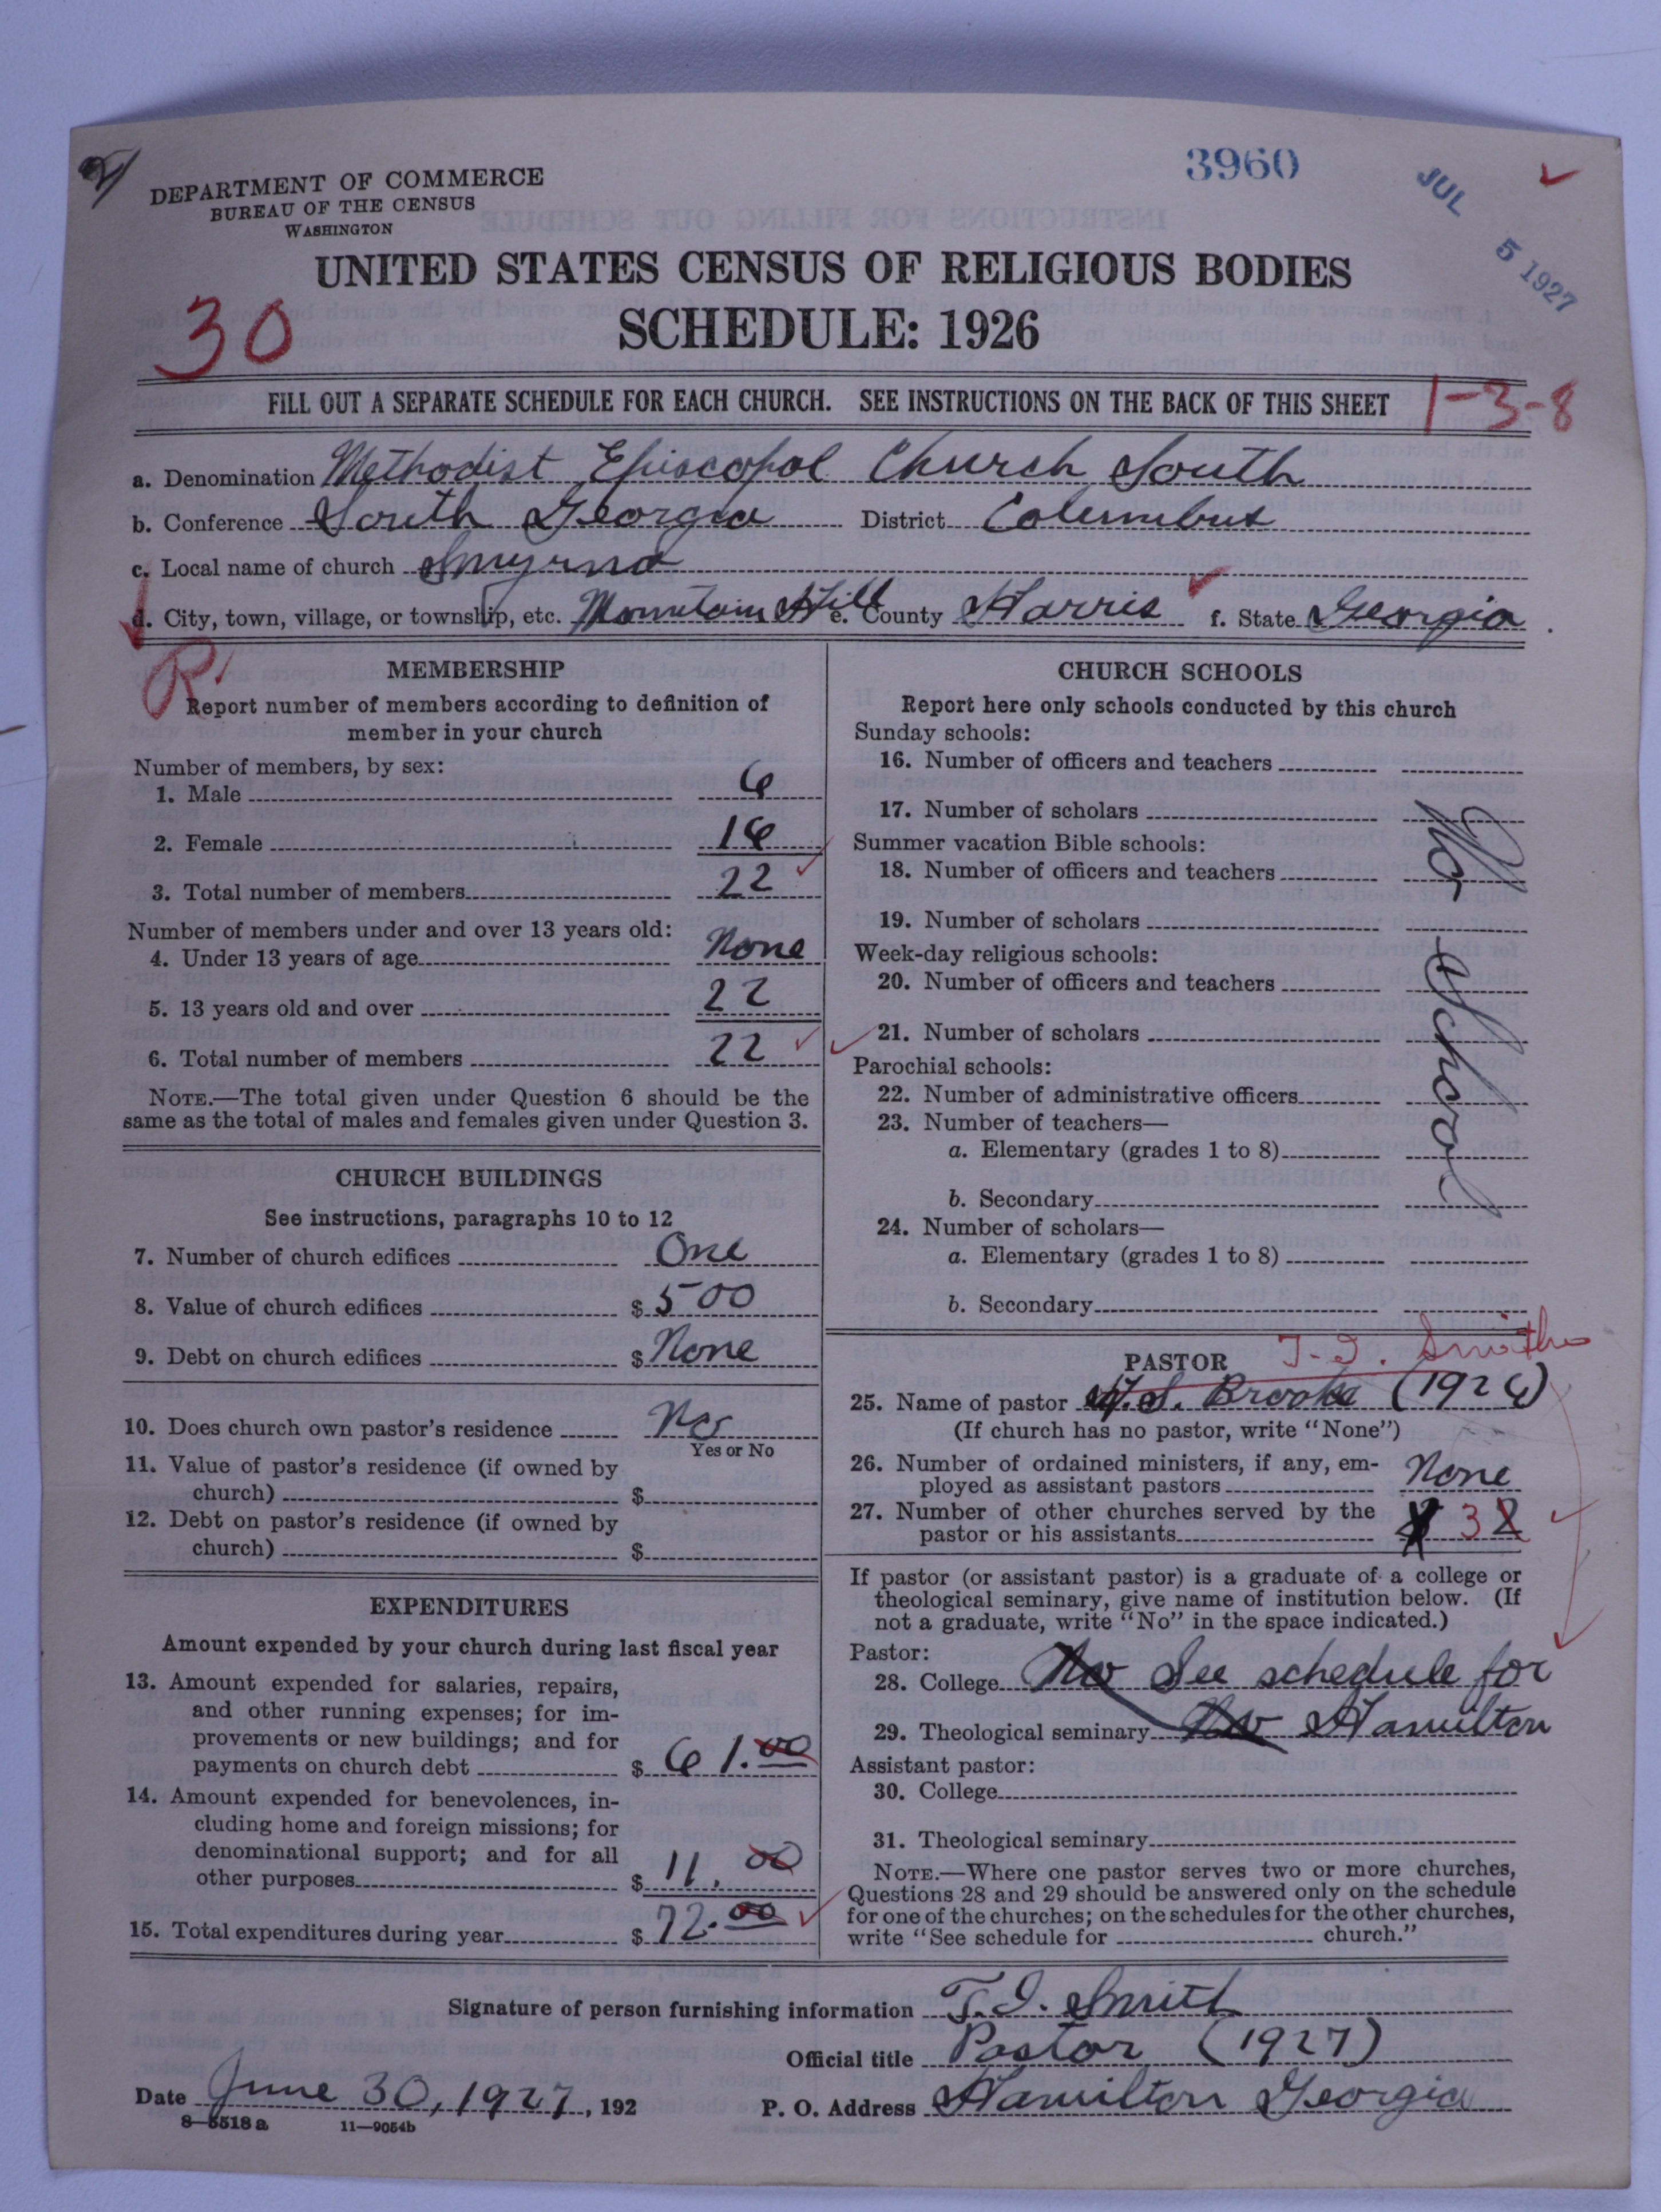 3960
JUL 5 1927
DEPARTMENT OF COMMERCE
BUREAU OF THE CENSUS
WASHINGTON
UNITED STATES CENSUS OF RELIGIOUS BODIES
30
SCHEDULE: 1926
FILL OUT A SEPARATE SCHEDULE FOR EACH CHURCH. SEE INSTRUCTIONS ON THE BACK OF THIS SHEET
1-3-8
a. Denomination Methodist Episcopal Church South
b. Conference South Georgia District Columbus
c. Local name of church Smyrna
d. City, town, village, or township, etc. Mountain Hill e. County Harris f. State Georgia
R
MEMBERSHIP
Report number of members according to definition of
member in your church
Number of members, by sex:
1. Male 6
2. Female 16
3. Total number of members 22
Number of members under and over 13 years old:
4. Under 13 years of age None
5. 13 years old and over 22
6. Total number of members 22
NOTE.—The total given under Question 6 should be the
same as the total of males and females given under Question 3.
CHURCH BUILDINGS
See instructions, paragraphs 10 to 12
7. Number of church edifices One
8. Value of church edifices $ 500
9. Debt on church edifices $ None
10. Does church own pastor's residence No
Yes or No
11. Value of pastor's residence (if owned by
church) $
12. Debt on pastor's residence (if owned by
church) $
EXPENDITURES
Amount expended by your church during last fiscal year
13. Amount expended for salaries, repairs,
and other running expenses; for im-
provements or new buildings; and for
payments on church debt $ 61.00
14. Amount expended for benevolences, in-
cluding home and foreign missions; for
denominational support; and for all
other purposes $ 11.00
15. Total expenditures during year $ 72.00
CHURCH SCHOOLS
Report here only schools conducted by this church
Sunday schools:
16. Number of officers and teachers
17. Number of scholars
Summer vacation Bible schools:
18. Number of officers and teachers
19. Number of scholars
Week-day religious schools:
20. Number of officers and teachers
21. Number of scholars
Parochial schools:
22. Number of administrative officers
23. Number of teachers—
a. Elementary (grades 1 to 8)
b. Secondary
24. Number of scholars—
a. Elementary (grades 1 to 8)
b. Secondary
No School
PASTOR T. I. Smith
25. Name of pastor S. Brooke (1926)
(If church has no pastor, write "None")
26. Number of ordained ministers, if any, em-
ployed as assistant pastors None
27. Number of other churches served by the
pastor or his assistants 3 2
If pastor (or assistant pastor) is a graduate of a college or
theological seminary, give name of institution below. (If
not a graduate, write "No" in the space indicated.)
Pastor:
28. College No See schedule for
29. Theological seminary No Hamilton
Assistant pastor:
30. College
31. Theological seminary
NOTE.—Where one pastor serves two or more churches,
Questions 28 and 29 should be answered only on the schedule
for one of the churches; on the schedules for the other churches,
write "See schedule for church."
Signature of person furnishing information T. I. Smith
Official title Pastor (1927)
Date June 30, 1927, 192
P. O. Address Hamilton Georgia
8—5518 a 11—9054b